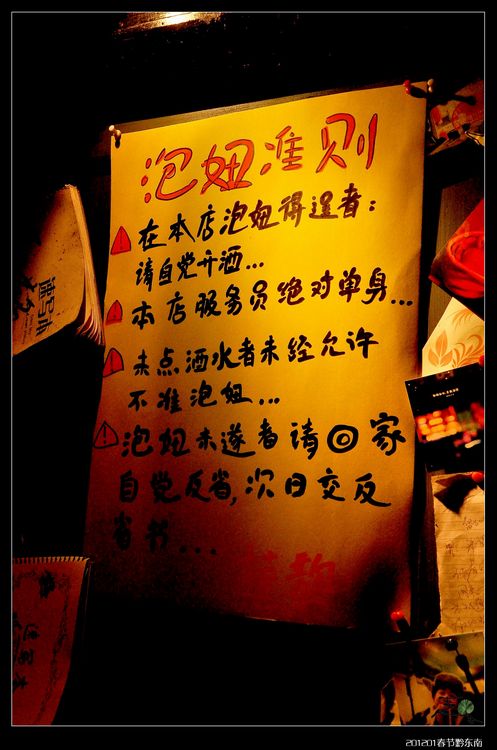 泡妞准则
在本店泡妞得逞者:
请自觉开酒...
本店服务员绝对单身...
未点酒水者未经允许
不准泡妞...
泡妞未遂者请回家
自觉反省,次日交反
省书...
201201春节黔东南